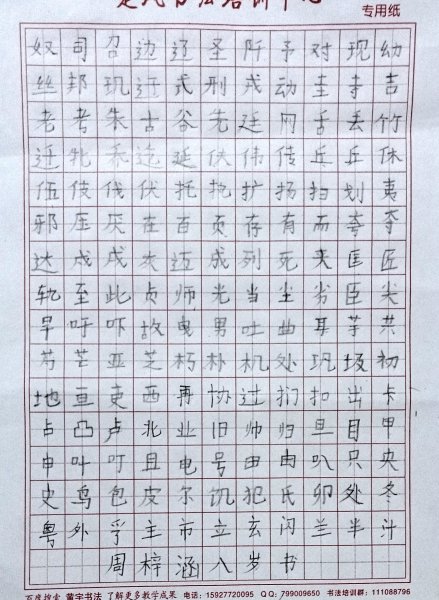 专用纸
奴司召边辽圣阡予对现幼
丝邦玑迁式刑戎动圭寺吉
老考朱古谷先廷网舌丢竹
迁牝乔迄延伏伟传乒丘休
伍伎伐伏托执扩扬扫划夷
邪压灰在百页存有而夸夺
达成成灰迈成列死夹匡匠
轨至此贞师光当尘劣臣尖
早吁吓故曳男吐曲耳芋共
芍芒亚芝朽朴机处巩圾初
地亘吏西再协过扪扣出卡
占凸卢北业旧帅归旦目甲
申叶叮且电号田由叭只央
史鸟包皮尔饥犯氏卯处冬
粤外孚主市立玄闪兰半汁
周梓涵八岁书
百度搜索 黄宇书法 了解更多教学成果 电话：15927720095 QQ：799009650 书法培训群：111088796